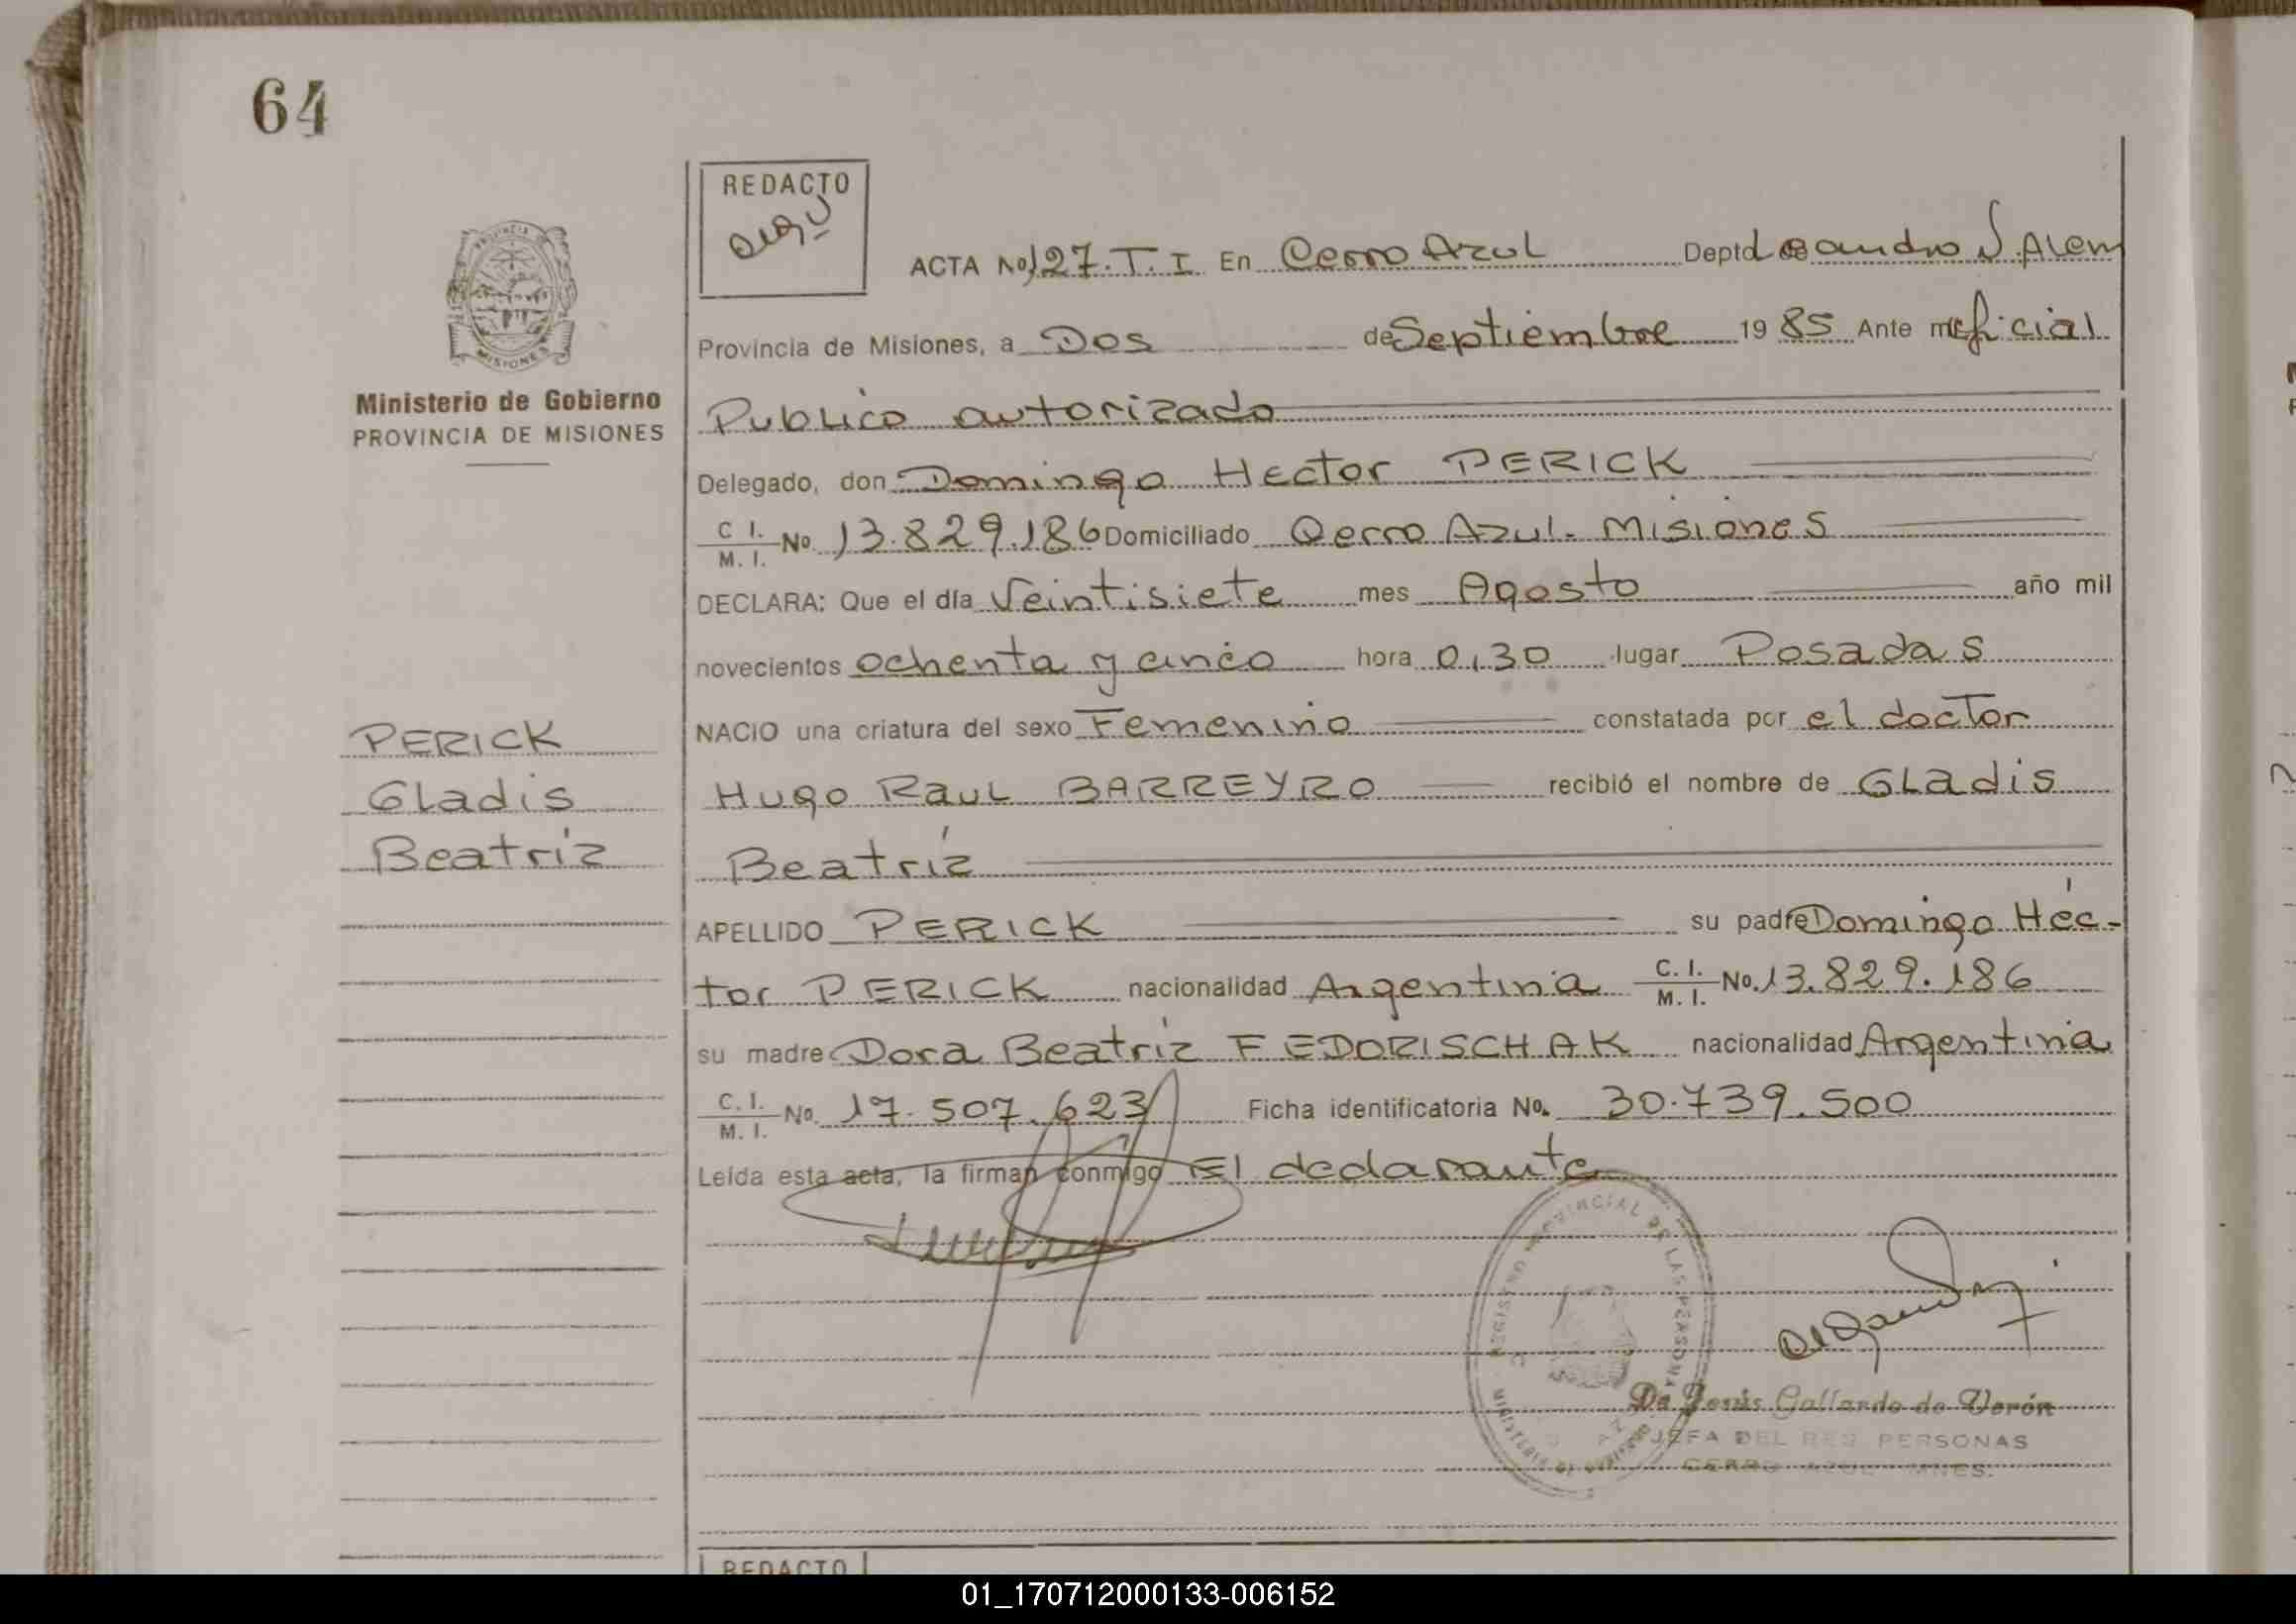 64
REDACTO
ACTA No 127. T. I En Cerro Azul Depto Leandro N. Alem
Provincia de Misiones, a Dos de Septiembre 19 85 Ante mi oficial
Publico autorizado
Ministerio de Gobierno
PROVINCIA DE MISIONES
Delegado, don Domingo Hector PERICK
C I. M. I. No. 13.829.186 Domiciliado Cerro Azul. Misiones
DECLARA: Que el día Veintisiete mes Agosto año mil
novecientos ochenta y cinco hora 0,30 lugar Posadas
NACIO una criatura del sexo Femenino constatada por el doctor
Hugo Raul BARREYRO recibió el nombre de Gladis
Beatríz
PERICK
Gladis
Beatriz
APELLIDO PERICK su padre Domingo Héc-
tor PERICK nacionalidad Argentina C. I. M. I. No. 13.829.186
su madre Dora Beatríz FEDORISCHAK nacionalidad Argentina
C. I. M. I. No. 17.507.623 Ficha identificatoria No. 30.739.500
Leída esta acta, la firman conmigo El declarante
PROVINCIA
MISIONES
REGISTRO PROVINCIAL DE LAS PERSONAS
De Jesús Gallardo de Verón
JEFA DEL REG PERSONAS
CERRO AZUL MNES.
REDACTO
01_170712000133-006152